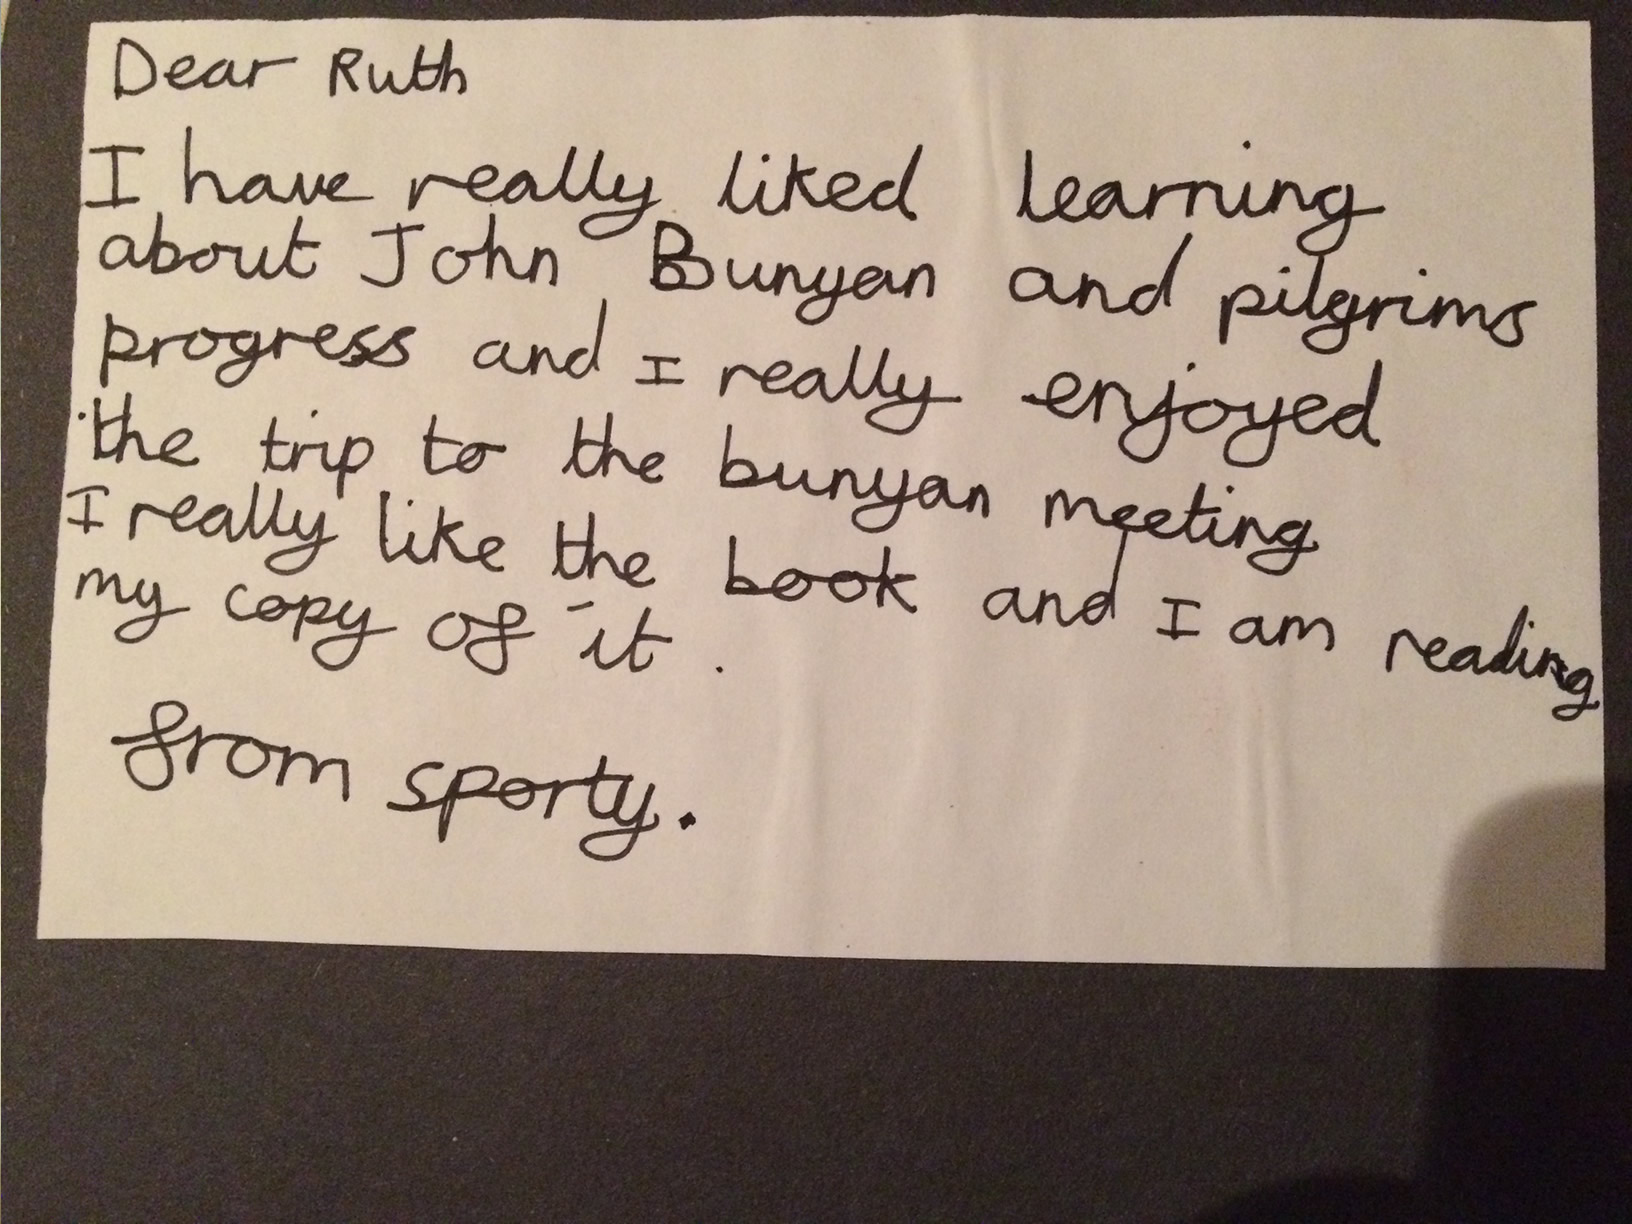 Dear Ruth
I have really liked learning
about John Bunyan and pilgrims
progress and I really enjoyed
the trip to the bunyan meeting
I really like the book and I am reading
my copy of it.
from sporty.